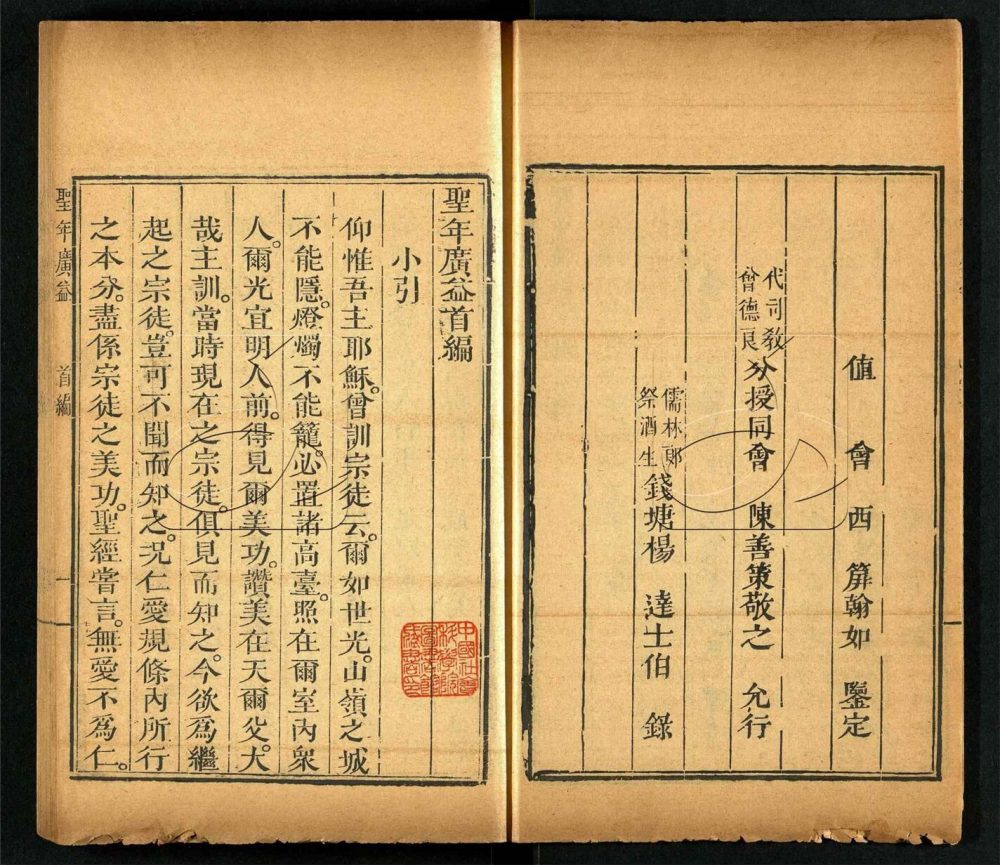 值會 西 屏翰如 鑒定
代司教
會德良
分授同會 陳善策敬之 允行
儒林郎
祭酒生
錢塘楊 達士伯 錄
聖年廣益首編
小引
仰惟吾主耶穌。曾訓宗徒云。爾如世光。山嶺之城
不能隱。燈燭不能籠。必置諸高臺。照在爾室內衆
人。爾光宜明人前。得見爾美功。讚美在天爾父。大
哉主訓。當時現在之宗徒。俱見而知之。今欲為繼
起之宗徒。豈可不聞而知之。況仁愛規條內所行
之本分。盡係宗徒之美功。聖經嘗言。無愛不為仁。
聖年廣益 首編 一